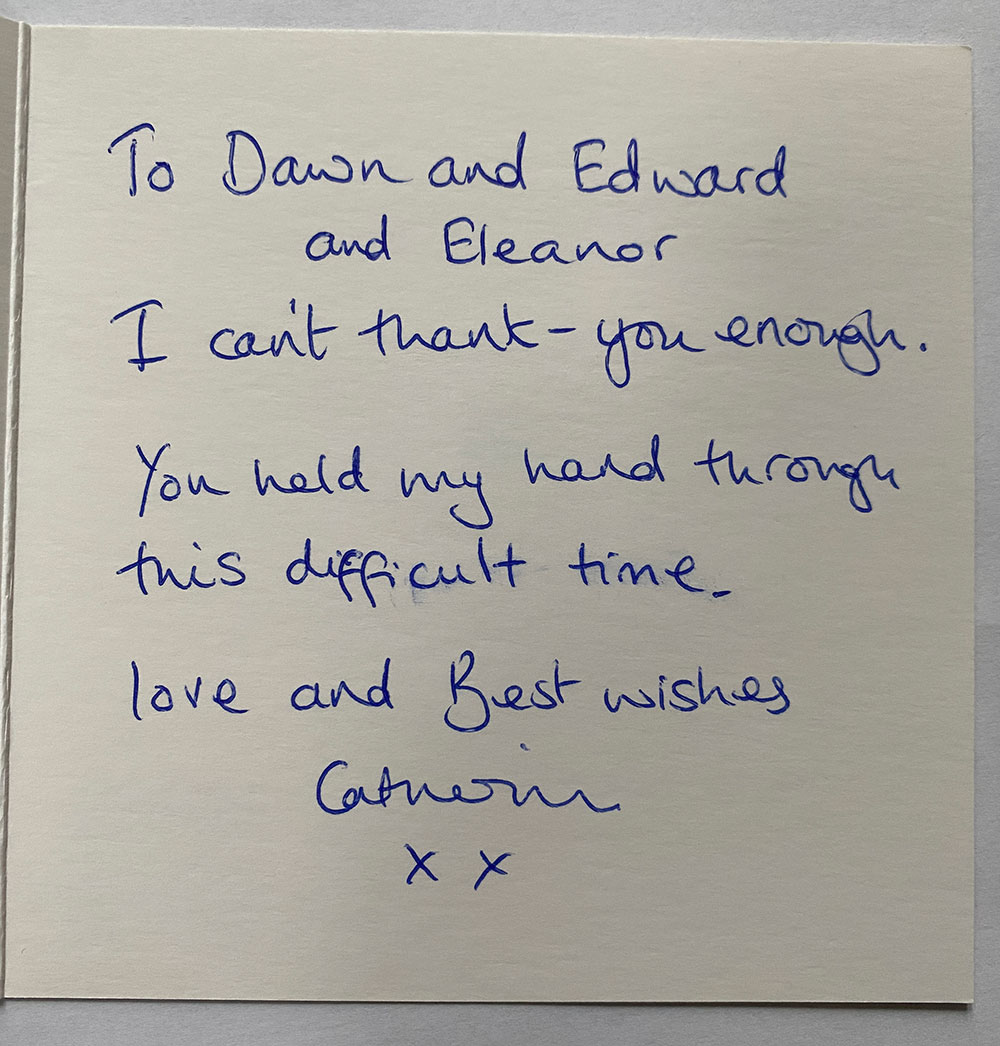 To Dawn and Edward
and Eleanor
I can't thank-you enough.
You held my hand through
this difficult time.
love and Best wishes
Catherine
x x